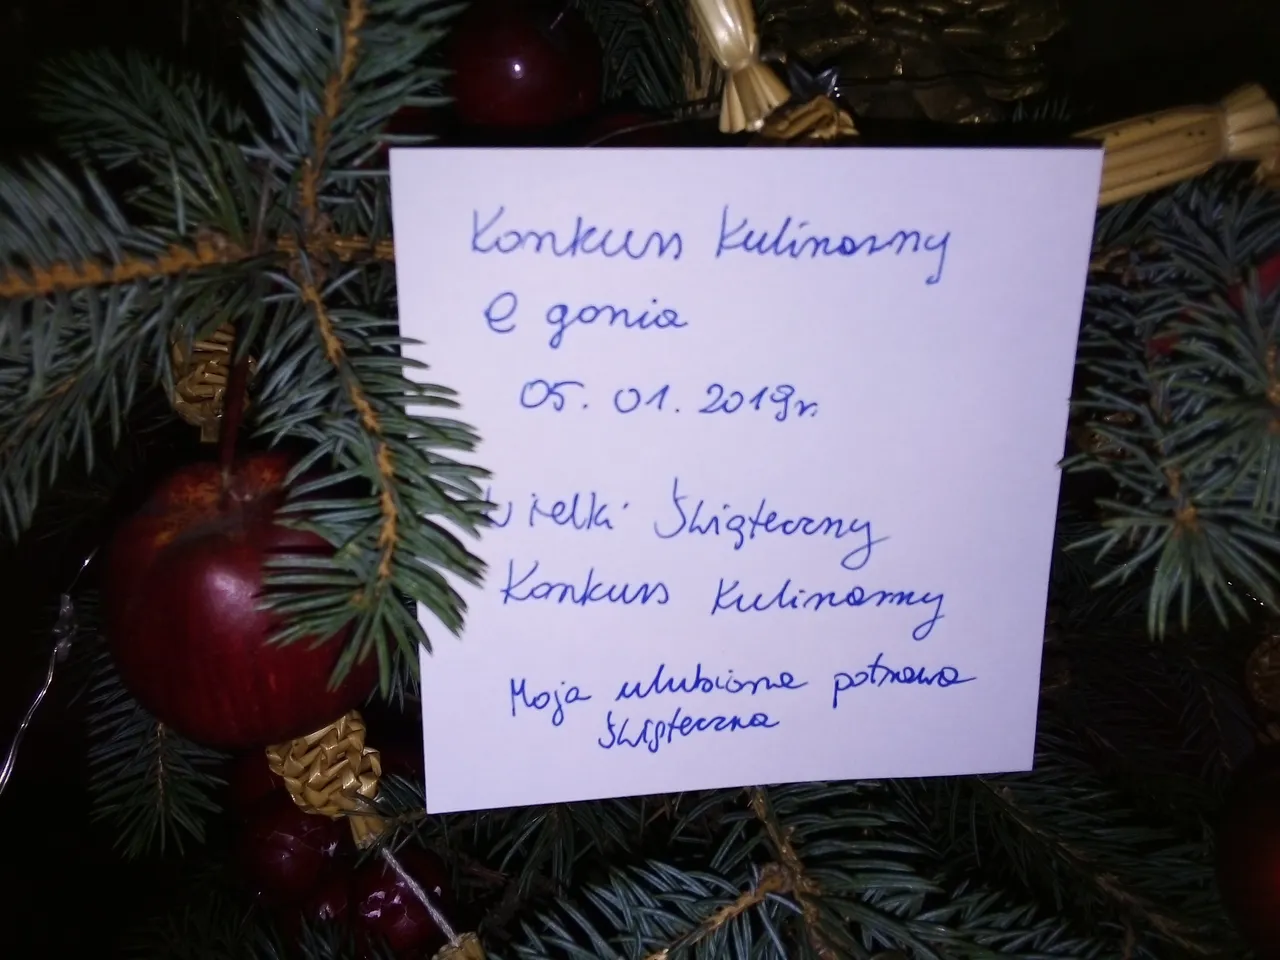 Konkurs Kulinarny
@ gonia
05.01.2019r.
Wielki Świąteczny
Konkurs Kulinarny
Moja ulubiona potrawa
Świąteczna